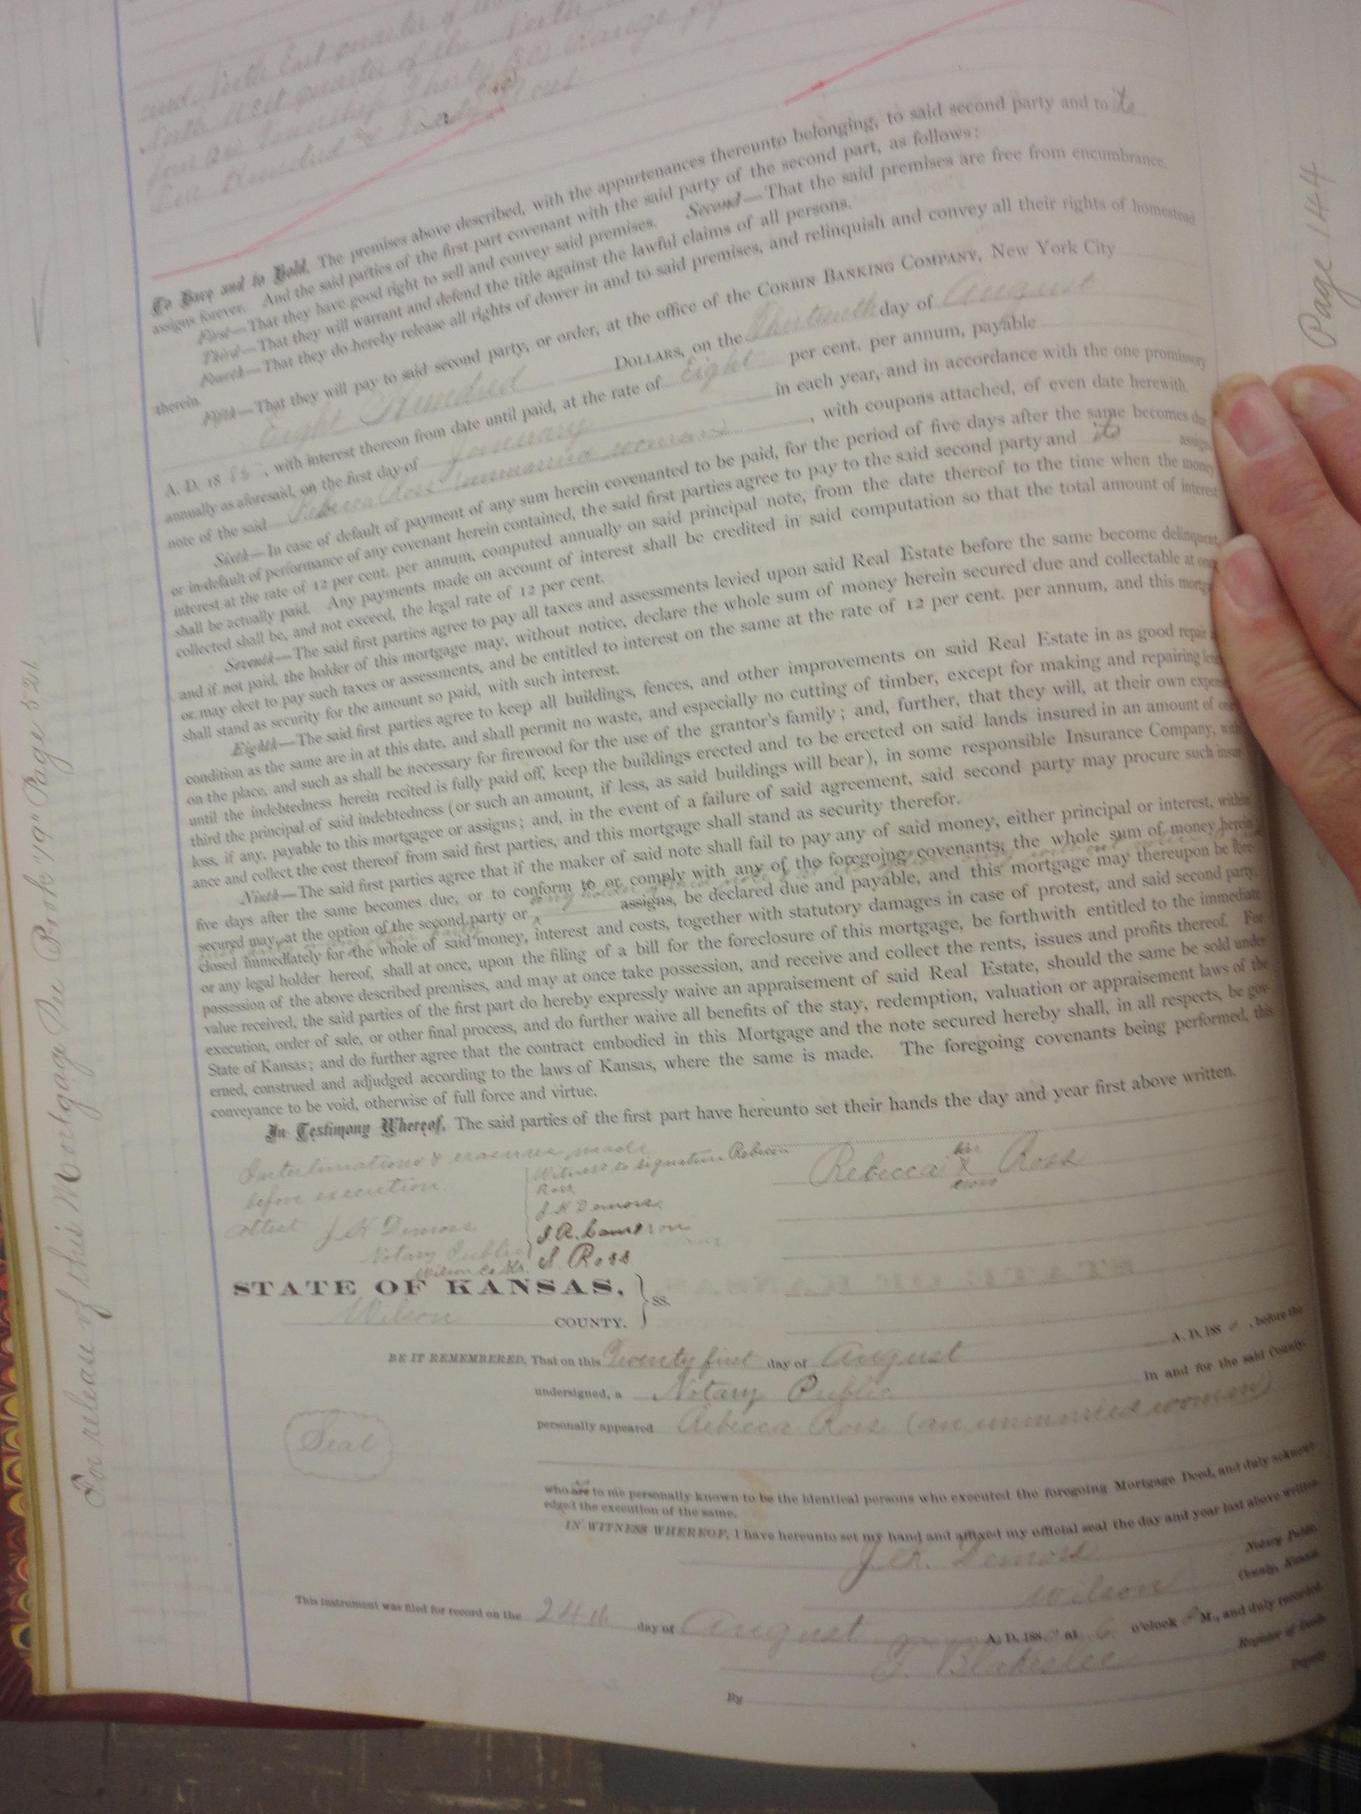 and North East quarter of
North West quarter of the North
four 24 Township Thirty 30 Range
One Hundred & Forty Acres
To Have and to Hold, The premises above described, with the appurtenances thereunto belonging, to said second party and to its
assigns forever. And the said parties of the first part covenant with the said party of the second part, as follows:
First—That they have good right to sell and convey said premises. Second—That the said premises are free from encumbrance.
Third—That they will warrant and defend the title against the lawful claims of all persons.
Fourth—That they do hereby release all rights of dower in and to said premises, and relinquish and convey all their rights of homestead
therein.
Fifth—That they will pay to said second party, or order, at the office of the CORBIN BANKING COMPANY, New York City
Eight Hundred DOLLARS, on the Thirteenth day of August
A. D. 1885, with interest thereon from date until paid, at the rate of Eight per cent. per annum, payable
annually as aforesaid, on the first day of January in each year, and in accordance with the one promissory
note of the said Rebecca Ross (unmarried woman), with coupons attached, of even date herewith.
Sixth—In case of default of payment of any sum herein covenanted to be paid, for the period of five days after the same becomes due
or in default of performance of any covenant herein contained, the said first parties agree to pay to the said second party and its assigns
interest at the rate of 12 per cent. per annum, computed annually on said principal note, from the date thereof to the time when the money
shall be actually paid. Any payments made on account of interest shall be credited in said computation so that the total amount of interest
collected shall be, and not exceed, the legal rate of 12 per cent.
Seventh—The said first parties agree to pay all taxes and assessments levied upon said Real Estate before the same become delinquent,
and if not paid, the holder of this mortgage may, without notice, declare the whole sum of money herein secured due and collectable at once
or may elect to pay such taxes or assessments, and be entitled to interest on the same at the rate of 12 per cent. per annum, and this mortg
shall stand as security for the amount so paid, with such interest.
Eighth—The said first parties agree to keep all buildings, fences, and other improvements on said Real Estate in as good repair a
condition as the same are in at this date, and shall permit no waste, and especially no cutting of timber, except for making and repairing
on the place, and such as shall be necessary for firewood for the use of the grantor's family; and, further, that they will, at their own expense
until the indebtedness herein recited is fully paid off, keep the buildings erected and to be erected on said lands insured in an amount of one
third the principal of said indebtedness (or such an amount, if less, as said buildings will bear), in some responsible Insurance Company, with
loss, if any, payable to this mortgagee or assigns; and, in the event of a failure of said agreement, said second party may procure such insur
ance and collect the cost thereof from said first parties, and this mortgage shall stand as security therefor.
Ninth—The said first parties agree that if the maker of said note shall fail to pay any of said money, either principal or interest, within
five days after the same becomes due, or to conform to or comply with any of the foregoing covenants, the whole sum of money herein
secured may, at the option of the second party or assigns, be declared due and payable, and this mortgage may thereupon be fore-
closed immediately for the whole of said money, interest and costs, together with statutory damages in case of protest, and said second party,
or any legal holder hereof, shall at once, upon the filing of a bill for the foreclosure of this mortgage, be forthwith entitled to the immediate
possession of the above described premises, and may at once take possession, and receive and collect the rents, issues and profits thereof. For
value received, the said parties of the first part do hereby expressly waive an appraisement of said Real Estate, should the same be sold under
execution, order of sale, or other final process, and do further waive all benefits of the stay, redemption, valuation or appraisement laws of the
State of Kansas; and do further agree that the contract embodied in this Mortgage and the note secured hereby shall, in all respects, be gov-
erned, construed and adjudged according to the laws of Kansas, where the same is made. The foregoing covenants being performed, this
conveyance to be void, otherwise of full force and virtue.
In Testimony Whereof, The said parties of the first part have hereunto set their hands the day and year first above written.
Interlineations & erasures made
before execution.
attest J K Demoss
Notary Public
Wilson Co Ks.
Witness to signature Rebecca
Ross
J K Demoss
J. R. Cameron
S. Ross
Rebecca her X cross Ross
STATE OF KANSAS,
Wilson COUNTY. } SS.
BE IT REMEMBERED, That on this Twenty first day of August A. D. 188 , before the
undersigned, a Notary Public in and for the said County,
personally appeared Rebecca Ross (an unmarried woman)
Seal
who are to me personally known to be the identical persons who executed the foregoing Mortgage Deed, and duly acknowl-
edged the execution of the same.
IN WITNESS WHEREOF, I have hereunto set my hand and affixed my official seal the day and year last above written.
J. K. Demoss Notary Public
Wilson County, Kansas.
This instrument was filed for record on the 24th day of August A. D. 188 at 6 o'clock P M., and duly recorded.
J. Blakeslee Register of Deeds
By Deputy
For release of this Mortgage In Book "19" Page 521
Page 144